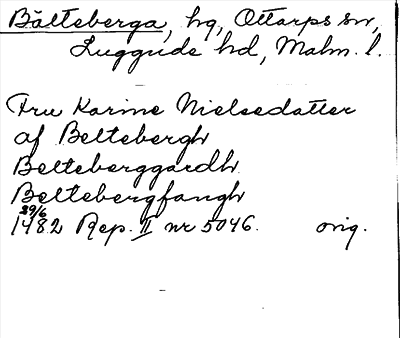 Bälteberga, hg, Ottarps sn,
Luggude hd, Malm. l.
Fru Karine Nielsedatter
af Beltebergh
Belteberggardh
Beltebergfangh
29/6
1482 Rep. II nr 5046. orig.